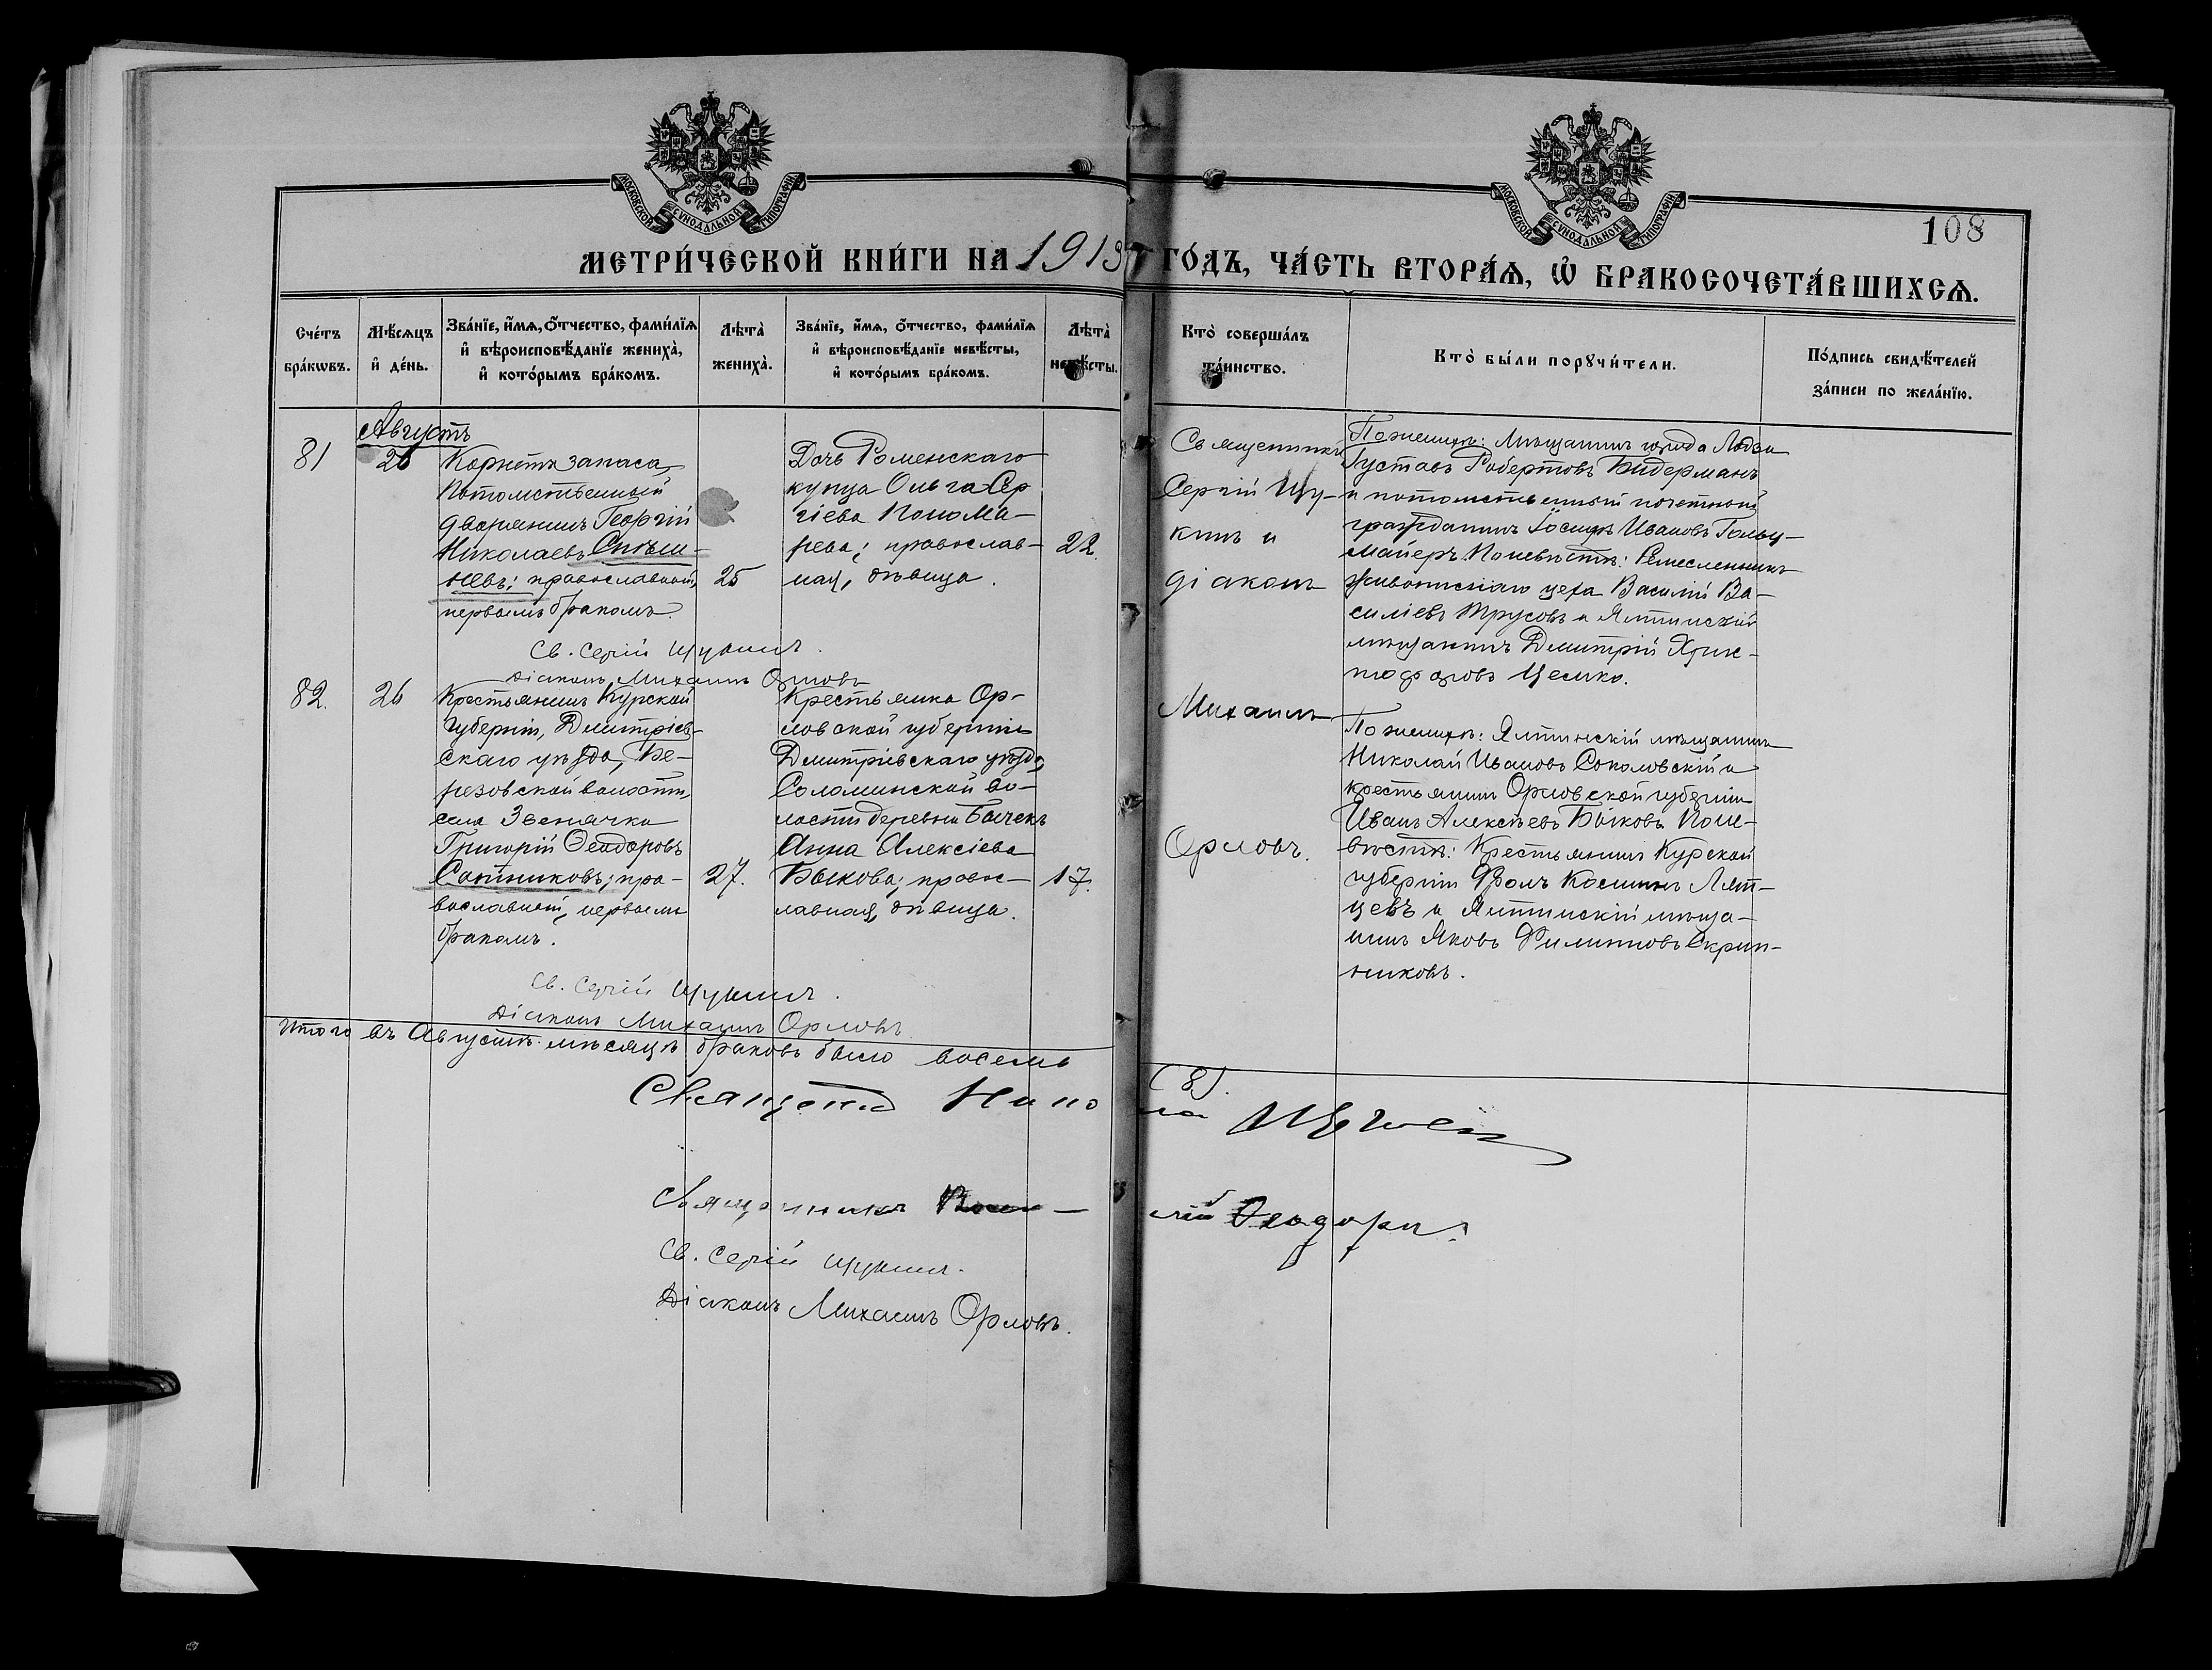 МОСКОВСКОЙ СѴНОДАЛЬНОЙ ТИПОГРАФІИ
МОСКОВСКОЙ СѴНОДАЛЬНОЙ ТИПОГРАФІИ
108
МЕТРИ́ЧЕСКОЙ КНИ́ГИ НА 1913 ГО́ДЪ, ЧА́СТЬ ВТОРА́Ѧ, Ѡ҆ БРАКОСОЧЕТА́ВШИХСѦ.
Сче́тъ
бра́кѡвъ.
Мѣ́сяцъ
и҆ де́нь.
Зва́нїе, и҆́мѧ, ѻ҆́тчество, фами́лїѧ
и҆ вѣроисповѣ́данїе жениха̀,
и҆ кото́рымъ бра́комъ.
Лѣта̀
жениха̀.
Зва́нїе, и҆́мѧ, ѻ҆́тчество, фами́лїѧ
и҆ вѣроисповѣ́данїе невѣ́сты,
и҆ кото́рымъ бра́комъ.
Лѣта̀
невѣ́сты.
Кто̀ соверша́лъ
та́инство.
Кто̀ бы́ли порꙋчи́тели.
По́дпись свидѣ́телей
за́писи по жела́нїю.
Августъ
81
26
Корнетъ запаса,
потомственный
дворянинъ Георгій
Николаевъ Спѣш-
невъ; православный,
первымъ бракомъ.
25
Дочь Роменскаго
купца Ольга Сер
гіева Понома-
рева; православ-
ная, дѣвица.
22.
Священникъ
Сергій Щу-
кинъ и
діаконъ
Михаилъ
Орловъ.
По женихѣ: Мѣщанинъ города Лодзи
Густавъ Робертовъ Бидерманъ
и потомственный почетный
гражданинъ Іосифъ Ивановъ Гольц-
майеръ. По невѣстѣ: Ремесленникъ
живописнаго цеха Василій Ва-
силіевъ Трусовъ и Ялтинскій
мѣщанинъ Дмитрій Хрис-
тофоровъ Цешко.
Св. Сергій Щукинъ.
Діаконъ Михаилъ Орловъ
82.
26
Крестьянинъ Курской
губерніи, Дмитріев-
скаго уѣзда, Бе-
резовской волости,
села Звенячка
Григорій Ѳеодоровъ
Сотниковъ; пра-
вославный, первымъ
бракомъ.
27.
Крестьянка Ор-
ловской губерніи
Дмитріевскаго уѣзда
Соломинской во-
лости деревни Бычекъ
Анна Алексіева
Быкова; правос-
лавная, дѣвица.
17.
По женихѣ: Ялтинскій мѣщанинъ
Николай Ивановъ Соколовскій и
крестьянинъ Орловской губерніи
Иванъ Алексѣевъ Быковъ. По не-
вѣстѣ: Крестьянинъ Курской
губерніи Фролъ Косминъ Лят-
цевъ и Ялтинскій мѣща-
нинъ Яковъ Филиповъ Скрип-
никовъ.
Св. Сергій Щукинъ.
Діаконъ Михаилъ Орловъ
Итого въ Августѣ мѣсяцѣ браковъ было восемь (8).
Священникъ
Св. Сергій Щукинъ.
Діаконъ Михаилъ Орловъ.